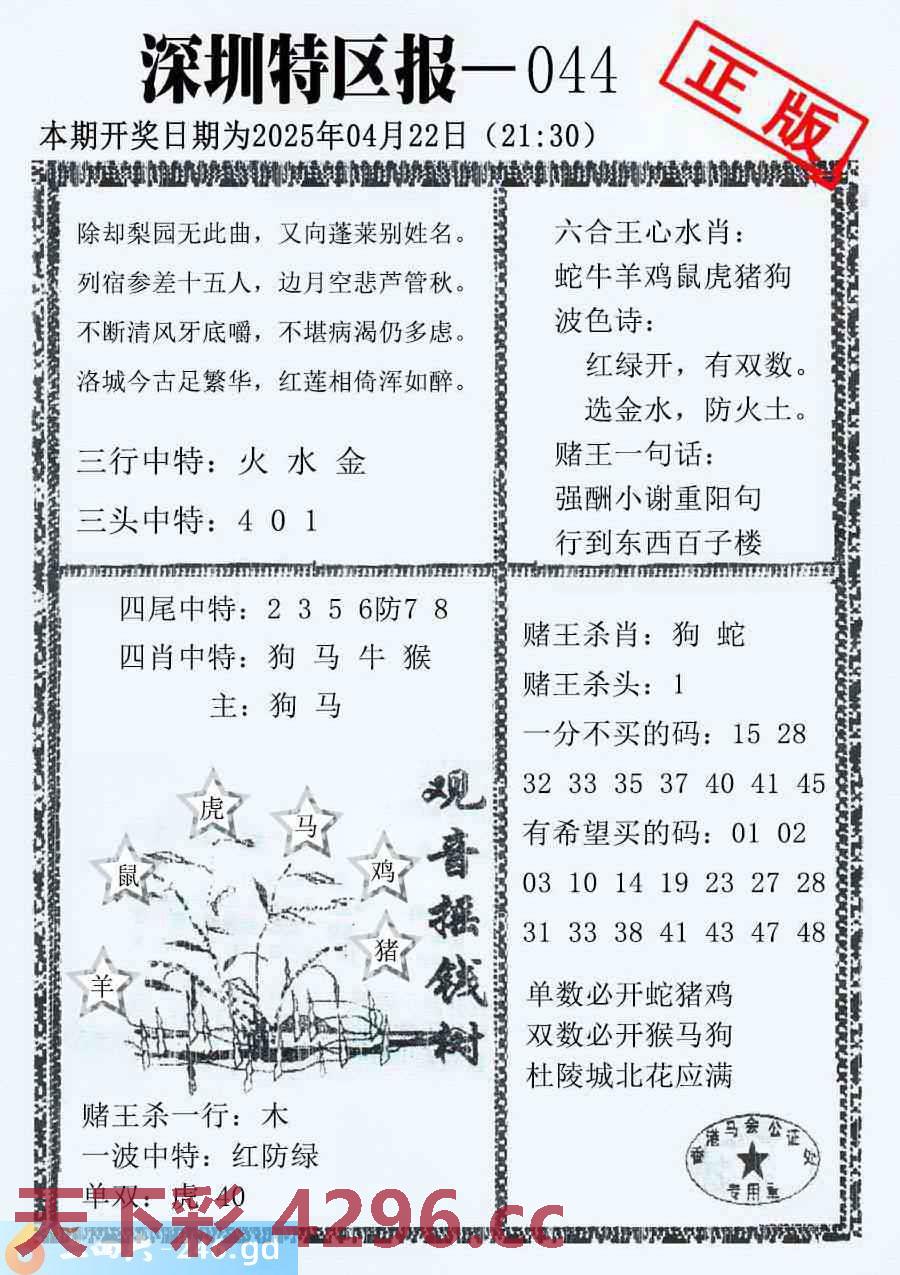 深圳特区报—044
正版
本期开奖日期为2025年04月22日（21:30）
除却梨园无此曲，又向蓬莱别姓名。
列宿参差十五人，边月空悲芦管秋。
不断清风牙底嚼，不堪病渴仍多虑。
洛城今古足繁华，红莲相倚浑如醉。
三行中特：火 水 金
三头中特：4 0 1
六合王心水肖：
蛇牛羊鸡鼠虎猪狗
波色诗：
红绿开，有双数。
选金水，防火土。
赌王一句话：
强酬小谢重阳句
行到东西百子楼
四尾中特：2 3 5 6防7 8
四肖中特：狗 马 牛 猴
主：狗 马
虎
马
鼠
鸡
猪
羊
观音摇钱树
赌王杀一行：木
一波中特：红防绿
单双：虎 40
赌王杀肖：狗 蛇
赌王杀头：1
一分不买的码：15 28
32 33 35 37 40 41 45
有希望买的码：01 02
03 10 14 19 23 27 28
31 33 38 41 43 47 48
单数必开蛇猪鸡
双数必开猴马狗
杜陵城北花应满
香港马会公证处
专用章
天下彩 4296.cc